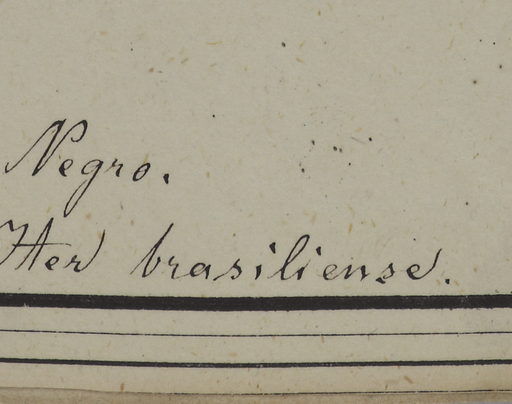 Negro.
Iter brasiliense.